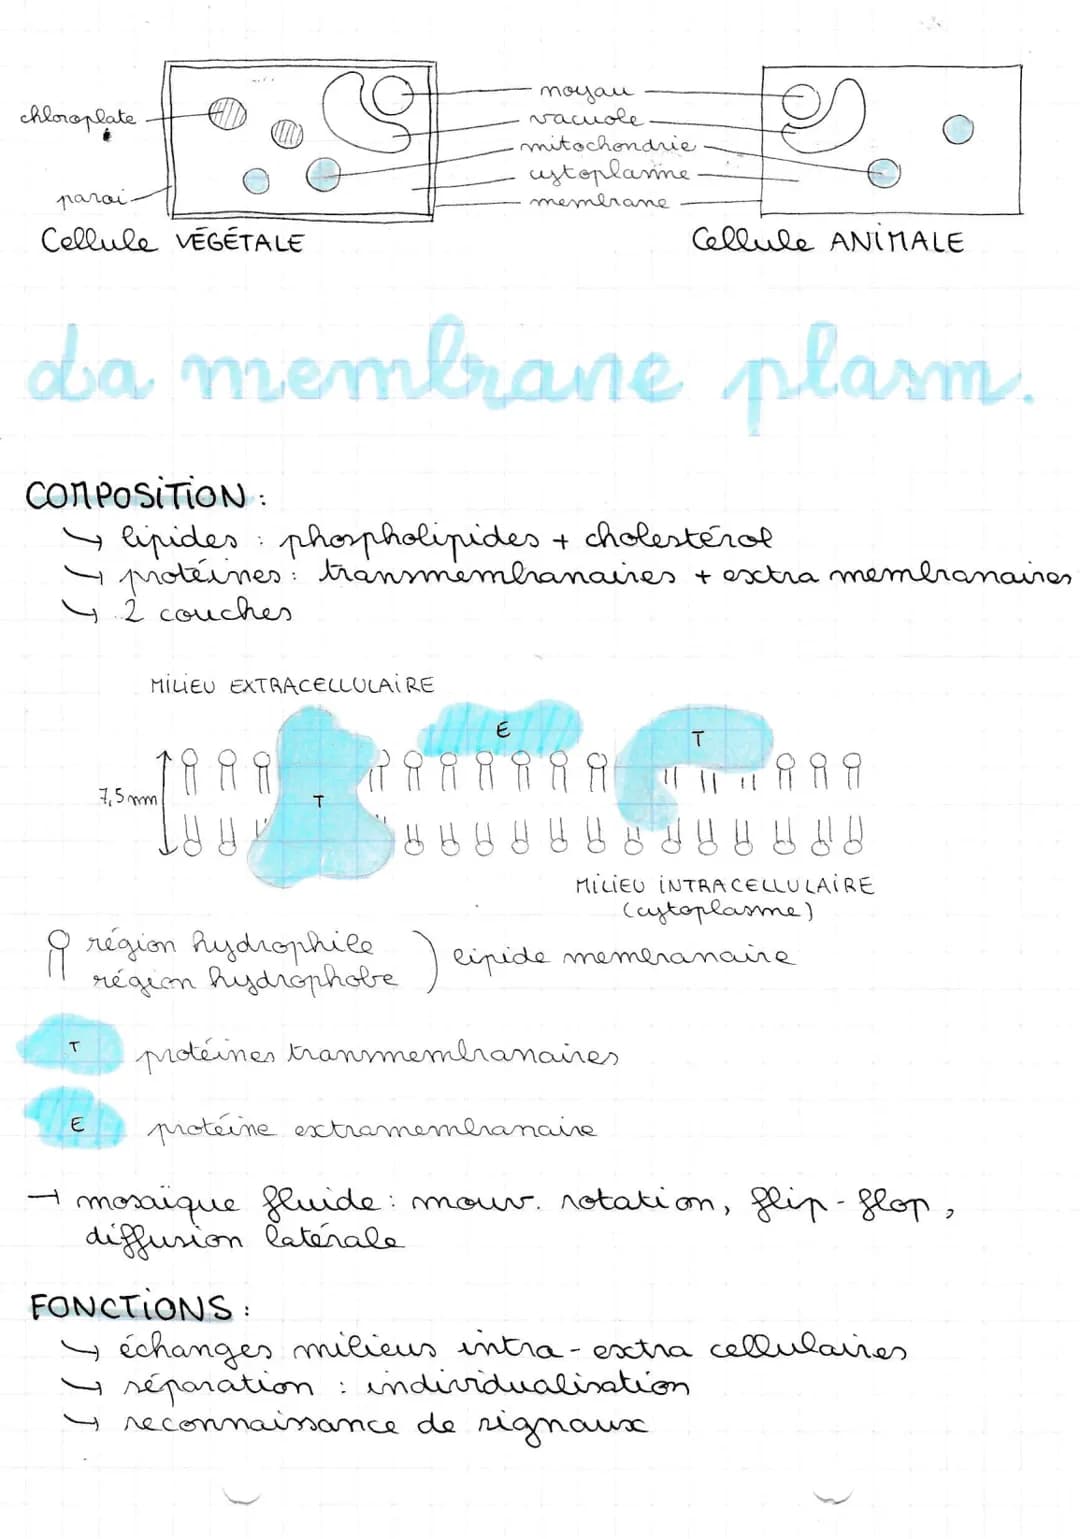 chloroplate
paroi
noyau
vacuole
mitochondrie
cytoplasme
membrane
Cellule VÉGÉTALE
Cellule ANIMALE
La membrane plasm.
COMPOSITION :
↳ lipides : phospholipides + cholestérol
↳ protéines : transmembranaires + extra membranaires
↳ 2 couches
MILIEU EXTRACELLULAIRE
E
T
7,5 nm
T
MILIEU INTRACELLULAIRE
(cytoplasme)
région hydrophile
région hydrophobe
) lipide membranaire
T protéines transmembranaires
E protéine extramembranaire
→ mosaïque fluide : mouv. rotation, flip-flop,
diffusion latérale
FONCTIONS :
↳ échanges milieux intra-extra cellulaires
↳ séparation : individualisation
↳ reconnaissance de signaux